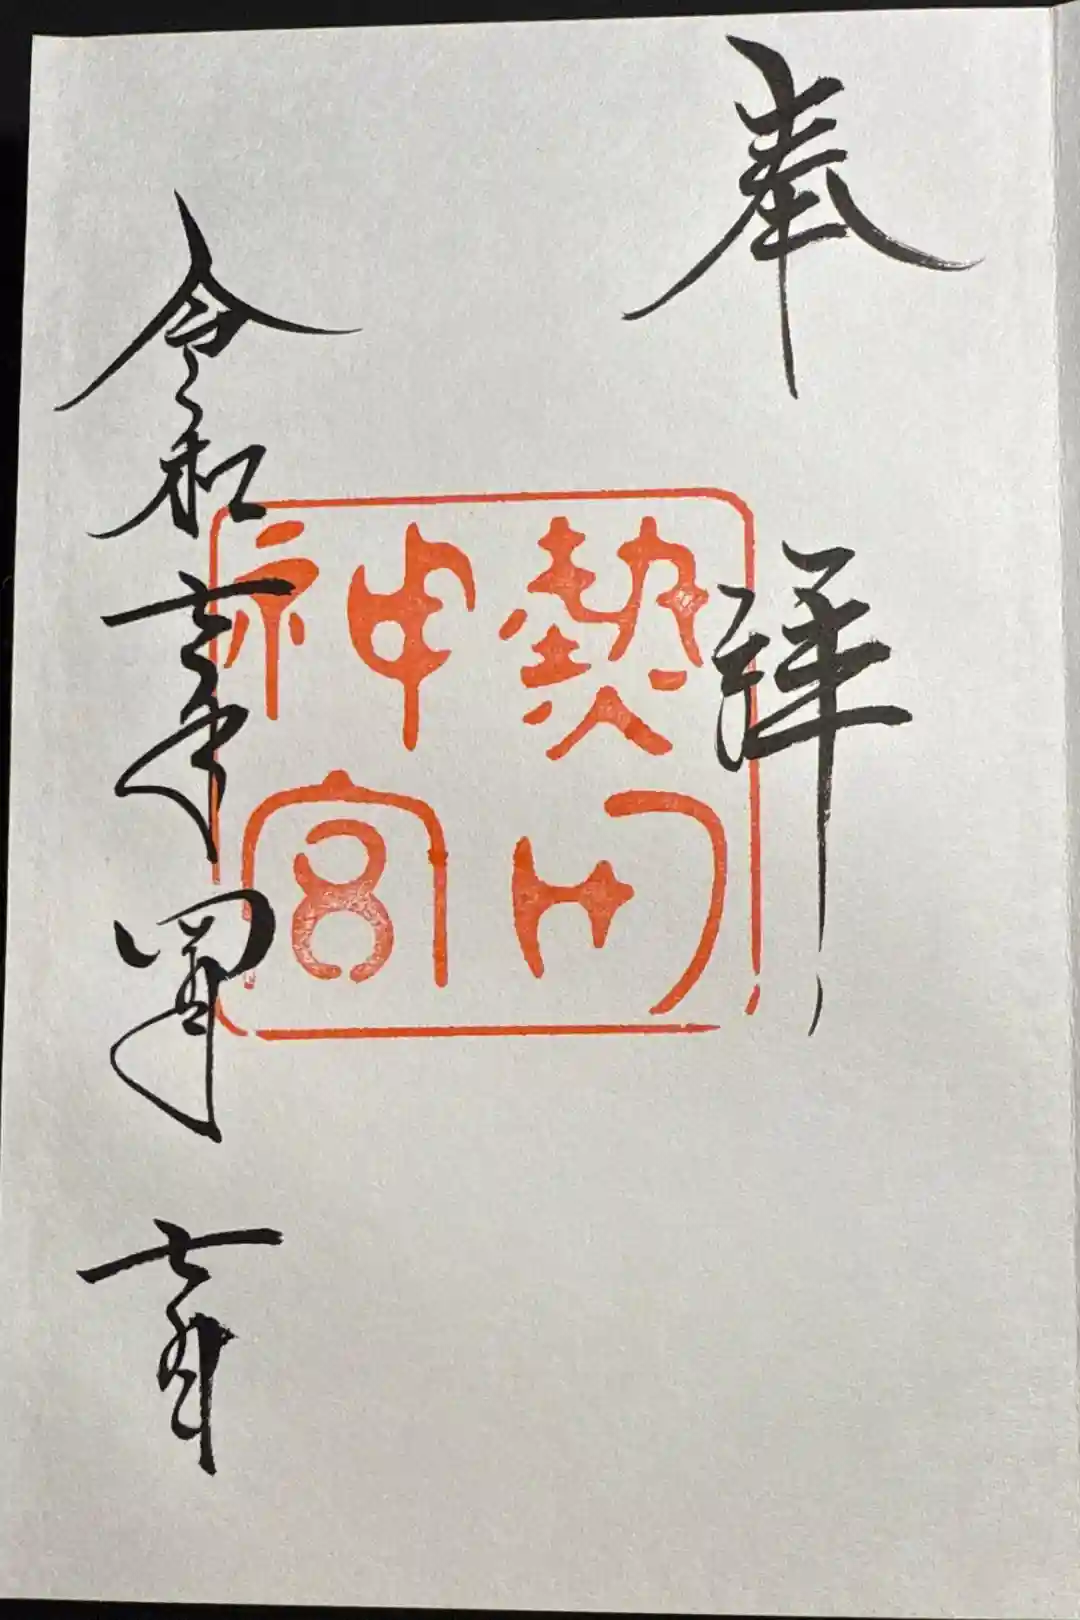 奉拝
熱田
神宮
令和七年四月七日